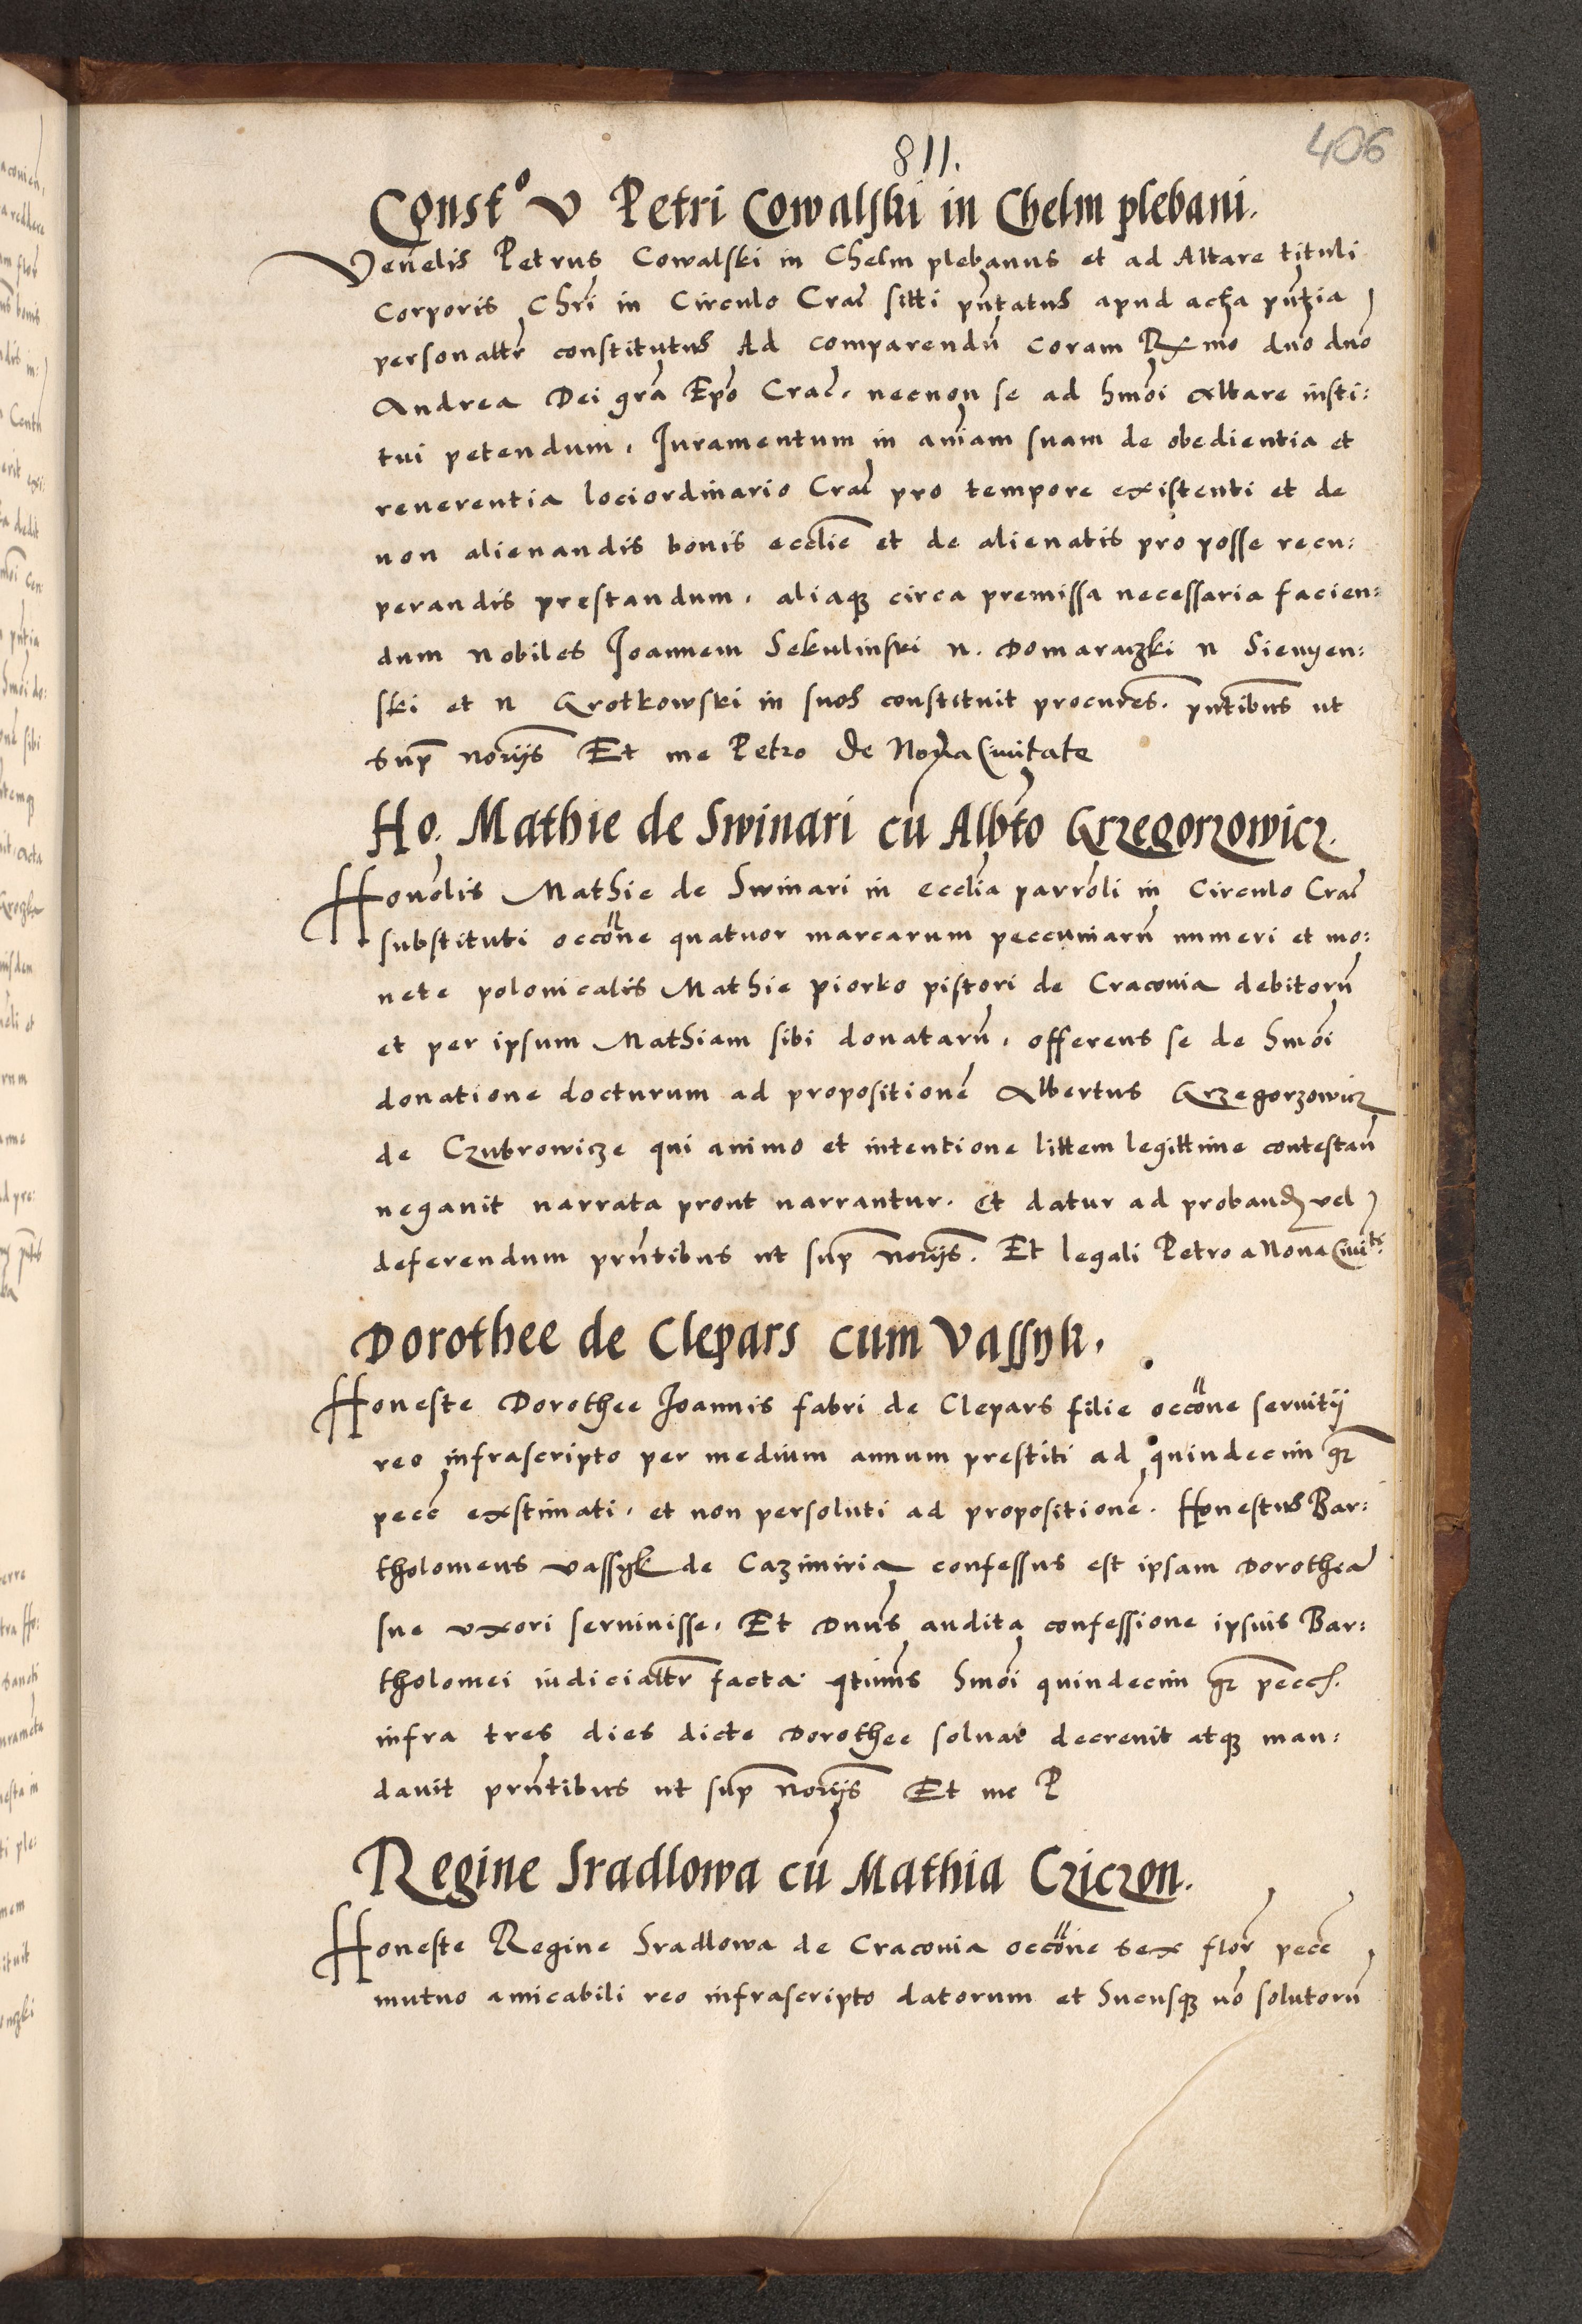 811.
406
Const° V Petri Cowalski in Chelm plebani.
Venelis Petrus Cowalski in Chelm plebanus et ad Altare tituli
Corporis Chri in Circulo Crac sitti pntatus apud acta pntia
personaltr constitutus Ad comparendu coram Rxmo dno dno
Andrea Dei gra Epo Crac. necnon se ad hmoi altare insti:
tui petendum, Juramentum in aniam suam de obedientia et
reuerentia lociordinario Crac pro tempore existenti et de
non alienandis bonis ecclie et de alienatis pro posse recu:
perandis prestandum, aliaq circa premissa necessaria facien:
dum Nobiles Joannem Sekulinski N. Domaraczki N Sienyen:
ski et N Grotkowski in suos constituit procures. pntibus ut
sup noriis Et me Petro de Noua Ciuitate
Ho. Mathie de Swinari cu Albto Grzegorzowicz.
Honolis Mathie de Swinari in ecclia parroli in Circulo Crac
substituti occone quatuor marcarum peccuniaru numeri et mo:
nete polonicalis Mathie piorko pistori de Cracouia debitoru
et per ipsum Mathiam sibi donataru, offerens se de hmoi
donatione docturum ad propositione Albertus Grzegorzowicz
de Czubrowicze qui animo et intentione littem legittime contestan
negauit narrata prout narrantur. Et datur ad proband vel
deferendum prntibus ut sup noriis. Et legali Petro a Noua Ciuit.
Dorothee de Clepars cum Vassyk.
Honeste Dorothee Joannis fabri de Clepars filie occone seruitij
reo infrascripto per medium annum prestiti ad quindecim gr
pecc exstimati, et non persoluti ad propositione. Honestus Bar:
tholomeus vassyk de Cazimiria confessus est ipsam Dorothea
sue vxori seruiuisse, Et Dnus audita confessione ipsius Bar:
tholomei iudicialtr facta qtinus hmoi quindecim gr pecc.
infra tres dies dicte Dorothee soluat decreuit atq man:
dauit prntibus ut sup noriis Et me P
Regine Sradlowa cu Mathia Cziczon.
Honeste Regine Sradlowa de Cracouia occone sex flor pecc
mutuo amicabili reo infrascripto datorum et hucusq no solutoru